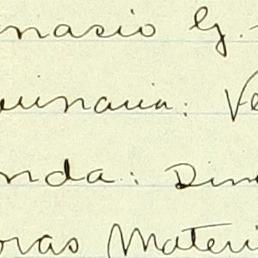 nasio G.
uinaria: Ve
nda: Din
oras Materi